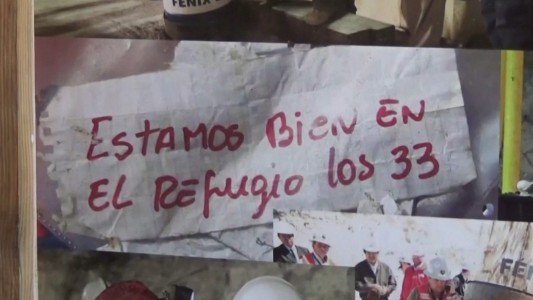 FENIX
ESTAMOS BIEN EN
EL REFUGIO los 33
FÉNI